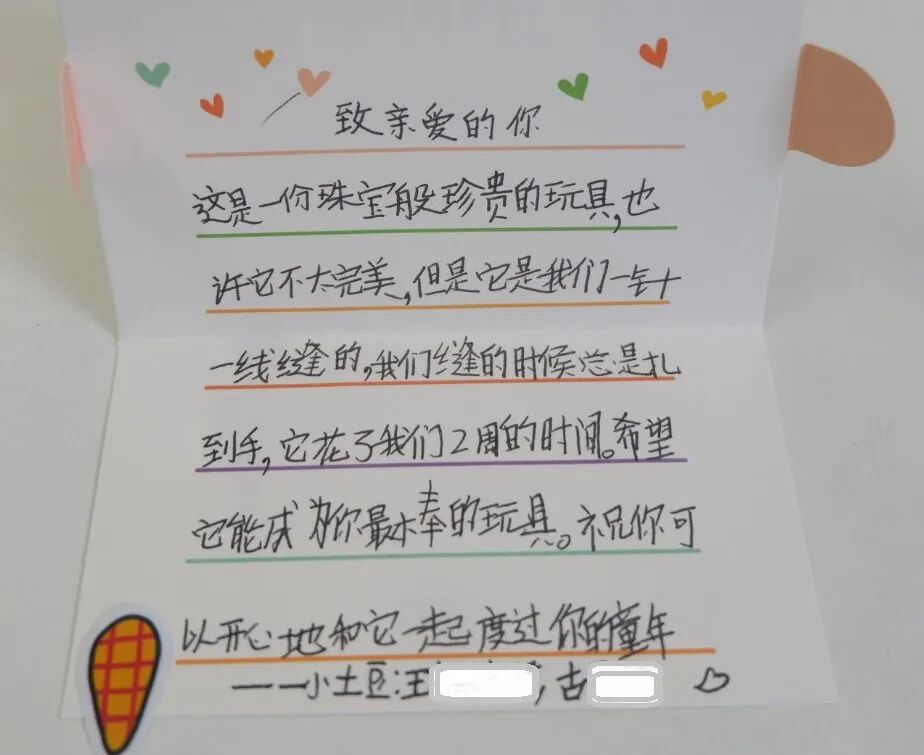 致亲爱的你
这是一份珠宝般珍贵的玩具,也
许它不太完美,但是它是我们一针
一线缝的,我们缝的时候总是扎
到手,它花了我们2周的时间。希望
它能成为你最棒的玩具。祝你可
以开心地和它一起度过你的童年
——小土豆:王,古